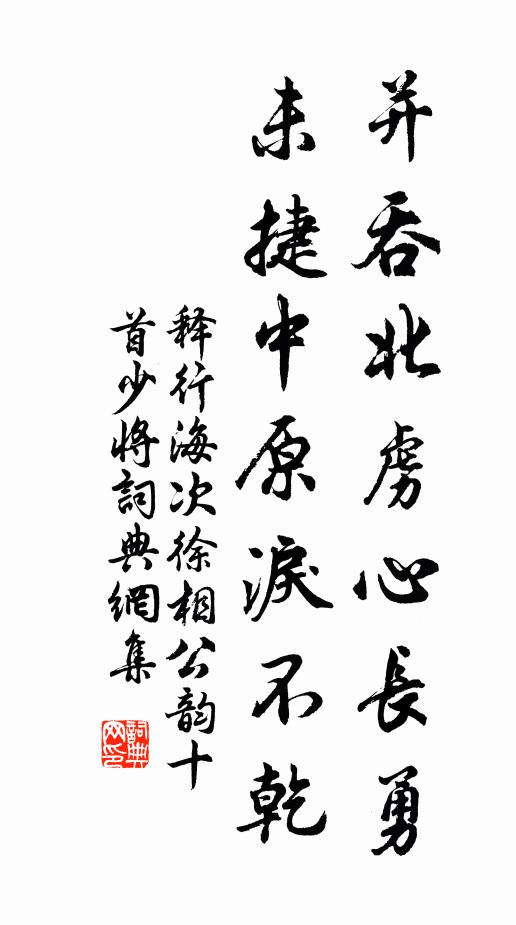 并吞北虏心長勇
未捷中原淚不乾
释行海次徐相公韵十
首少將詞典網集
詞典
網印